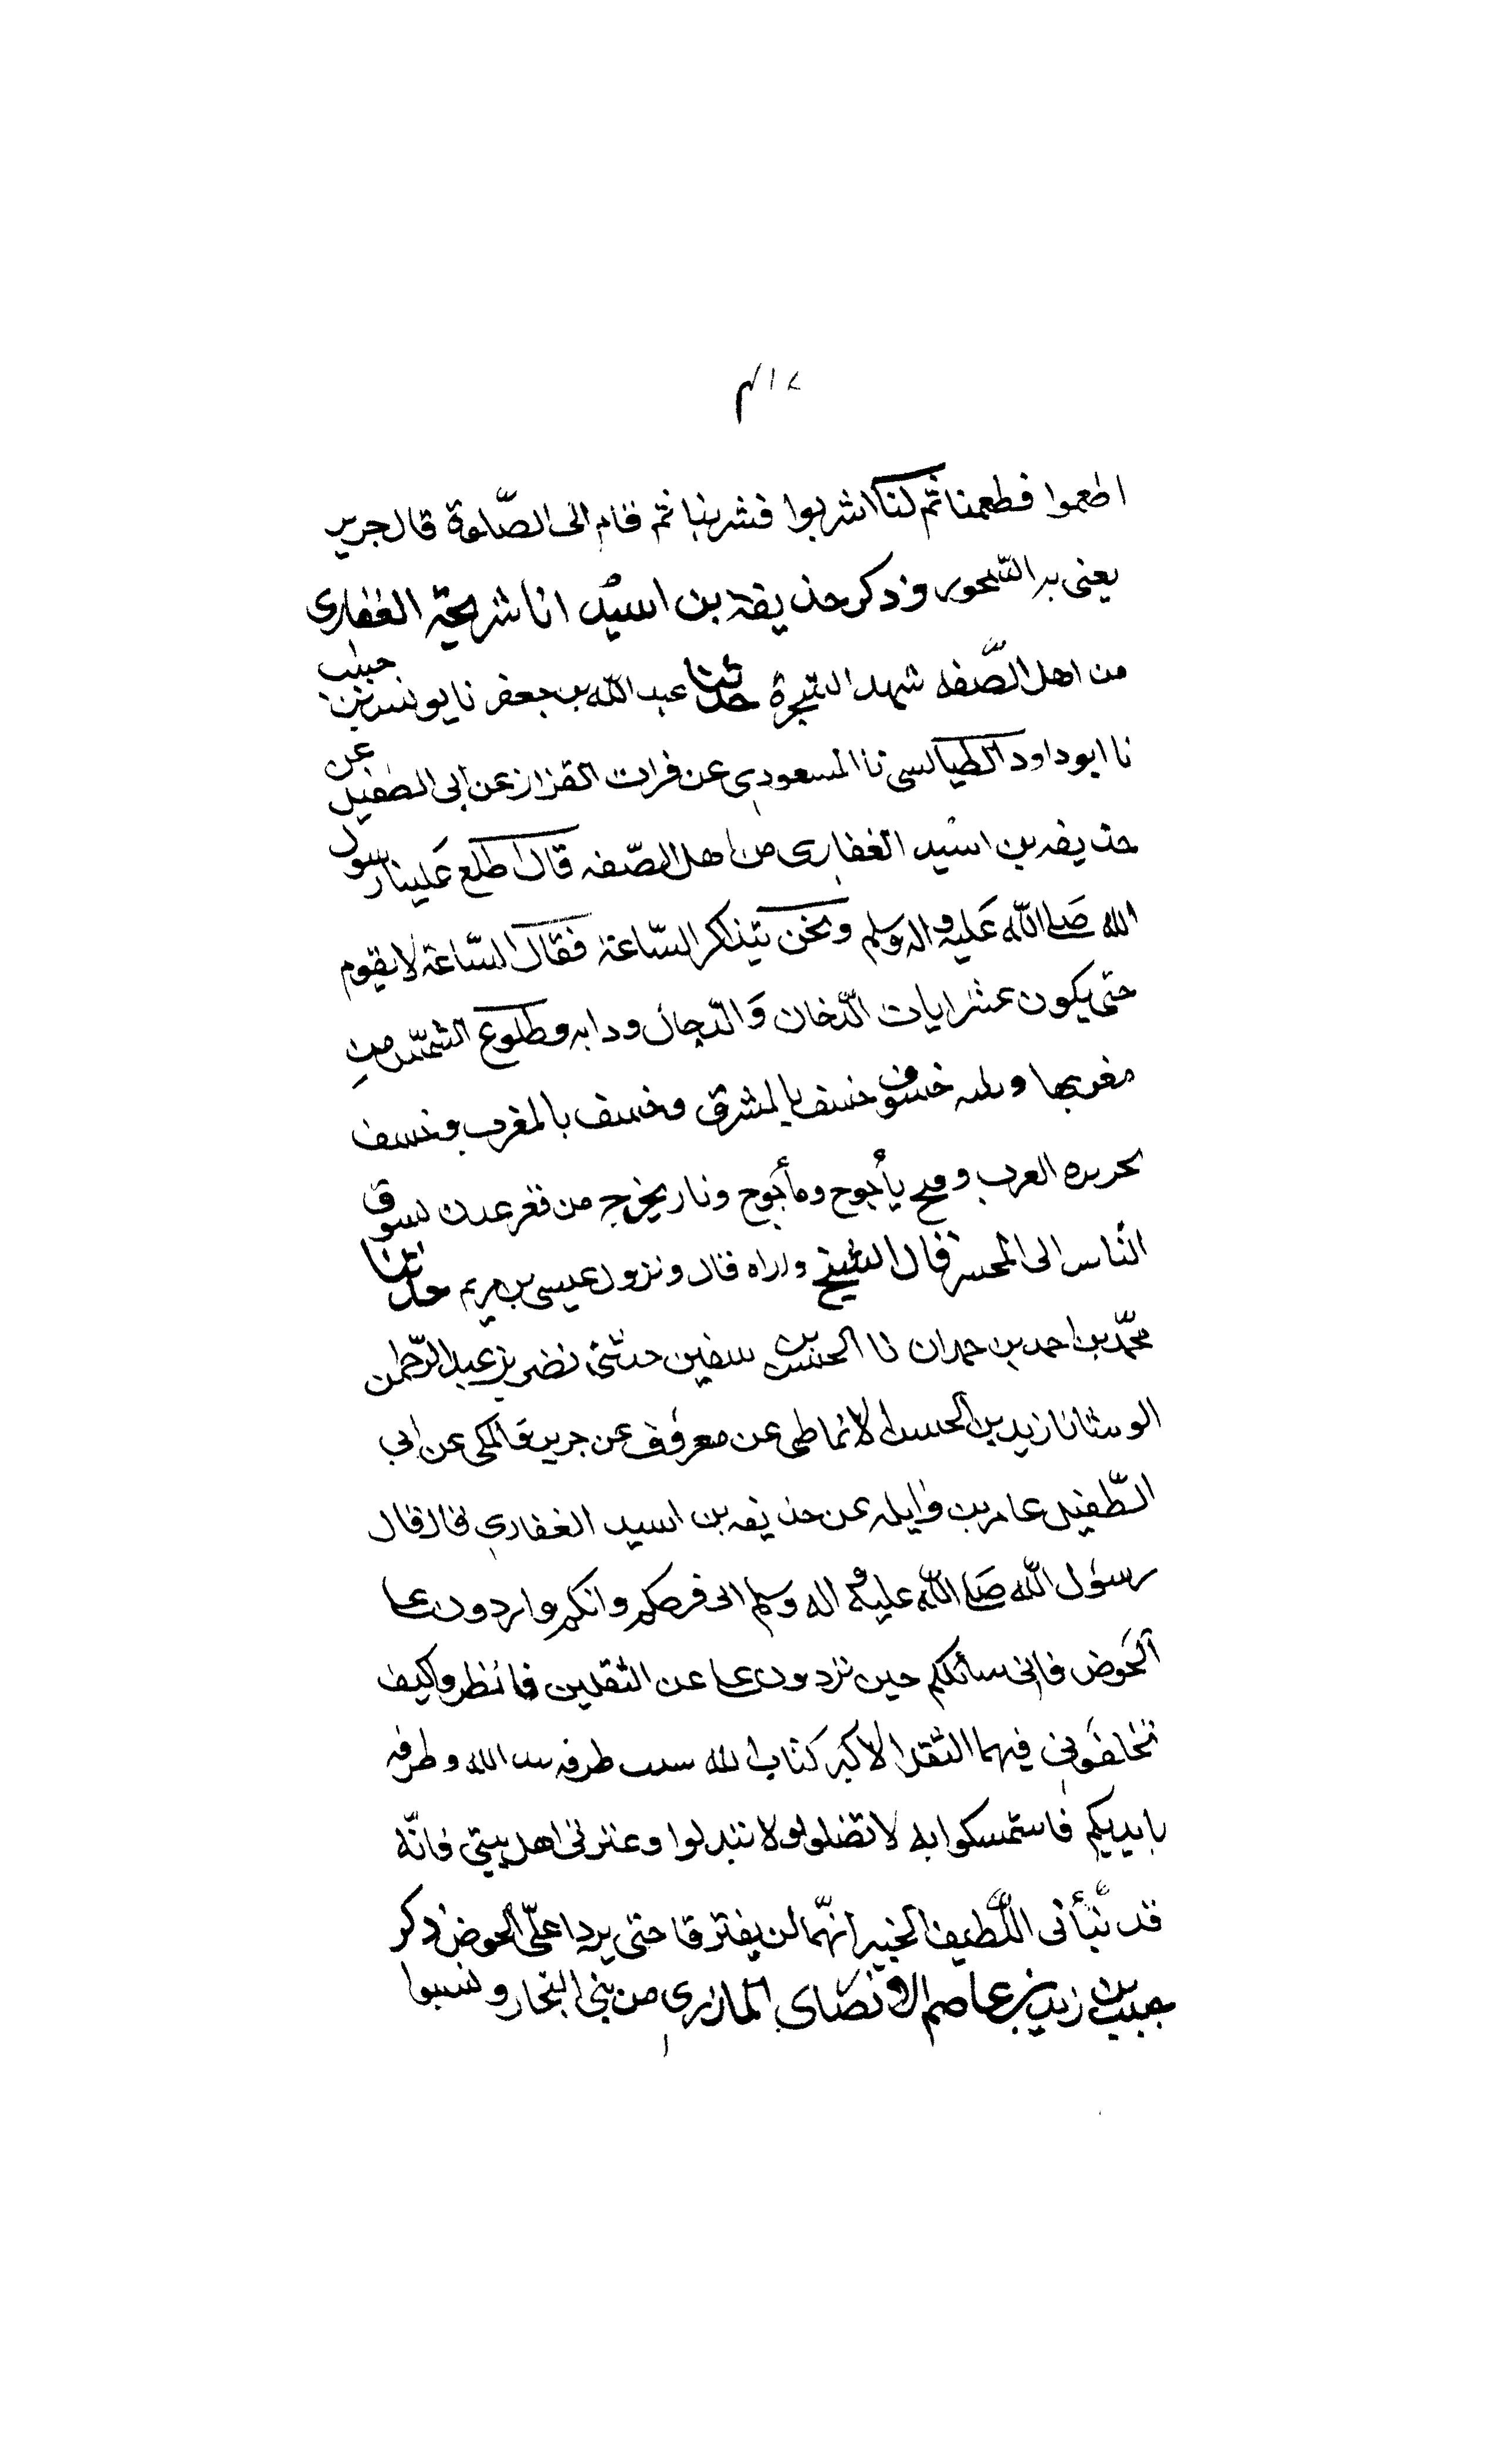 اطعموا فطعمنا ثم لنا اشربوا فشربنا ثم قام الى الصّلوة قال جرير
يعنى به السّحور وذكر حذيفة بن اسيد ابا شريحة الغفارى
من اهل الصّفه شهد الشجرة حدثنا عبد الله بن جعفر نا يونس بن حبيب
نا ابوداود الطيالسى نا المسعودى عن فرات القزاز عن ابى الطفيل عن
حذيفه بن اسيد الغفارى من اهل الصّفه قال اطلع عَلينا رسول
الله صَلى الله عَليه واله وسلم ونحن نتذاكر السّاعة فقال السّاعة لا يقوم
حتى يكون عشر ايات الدّخان وَالدّجال ودابه وطلوع الشمس من
مغربها وثلثه خسوف خسف بالمشرق وخسف بالمغرب وخسف
بحريره العرب وفتح يأجوج ومأجوج ونار يخرج من قعر عدن تسوق
النّاس الى المحشر قال الشيخ واراه قال ونزول عيسى بن مريم حدثنا
محمّد بن احمد بن حمدان نا الحسن بن سفين حدثنى نضر بن عبد الرّحمن
الوشا نا زيد بن الحسن الانماطى عن معروف عن جريوذ المكى عن ابى
الطّفيل عامر بن وايله عن حذيفه بن اسيد الغفارى قال قال
رسول الله صَلى الله عليه واله وسلم انى فرطكم وانكم واردون على
الحَوض فانى سائلكم حين تردون على عن الثقلين فانظروا كيف
تخلفونى فيهما الثقل الاكبر كتاب الله سبب طرفه بيد الله وطرفه
بايديكم فاستمسكوا به لا تضلوا ولا تبدلوا وعترتى اهل بيتى فانّه
قد نبّأنى اللّطيف الخبير انّهما لن يفترقا حتى يردا علّى الحوض ذكر
حبيب بن زيد بن عاصم الانصاى المازنرى من بنى النجار ونسبوا